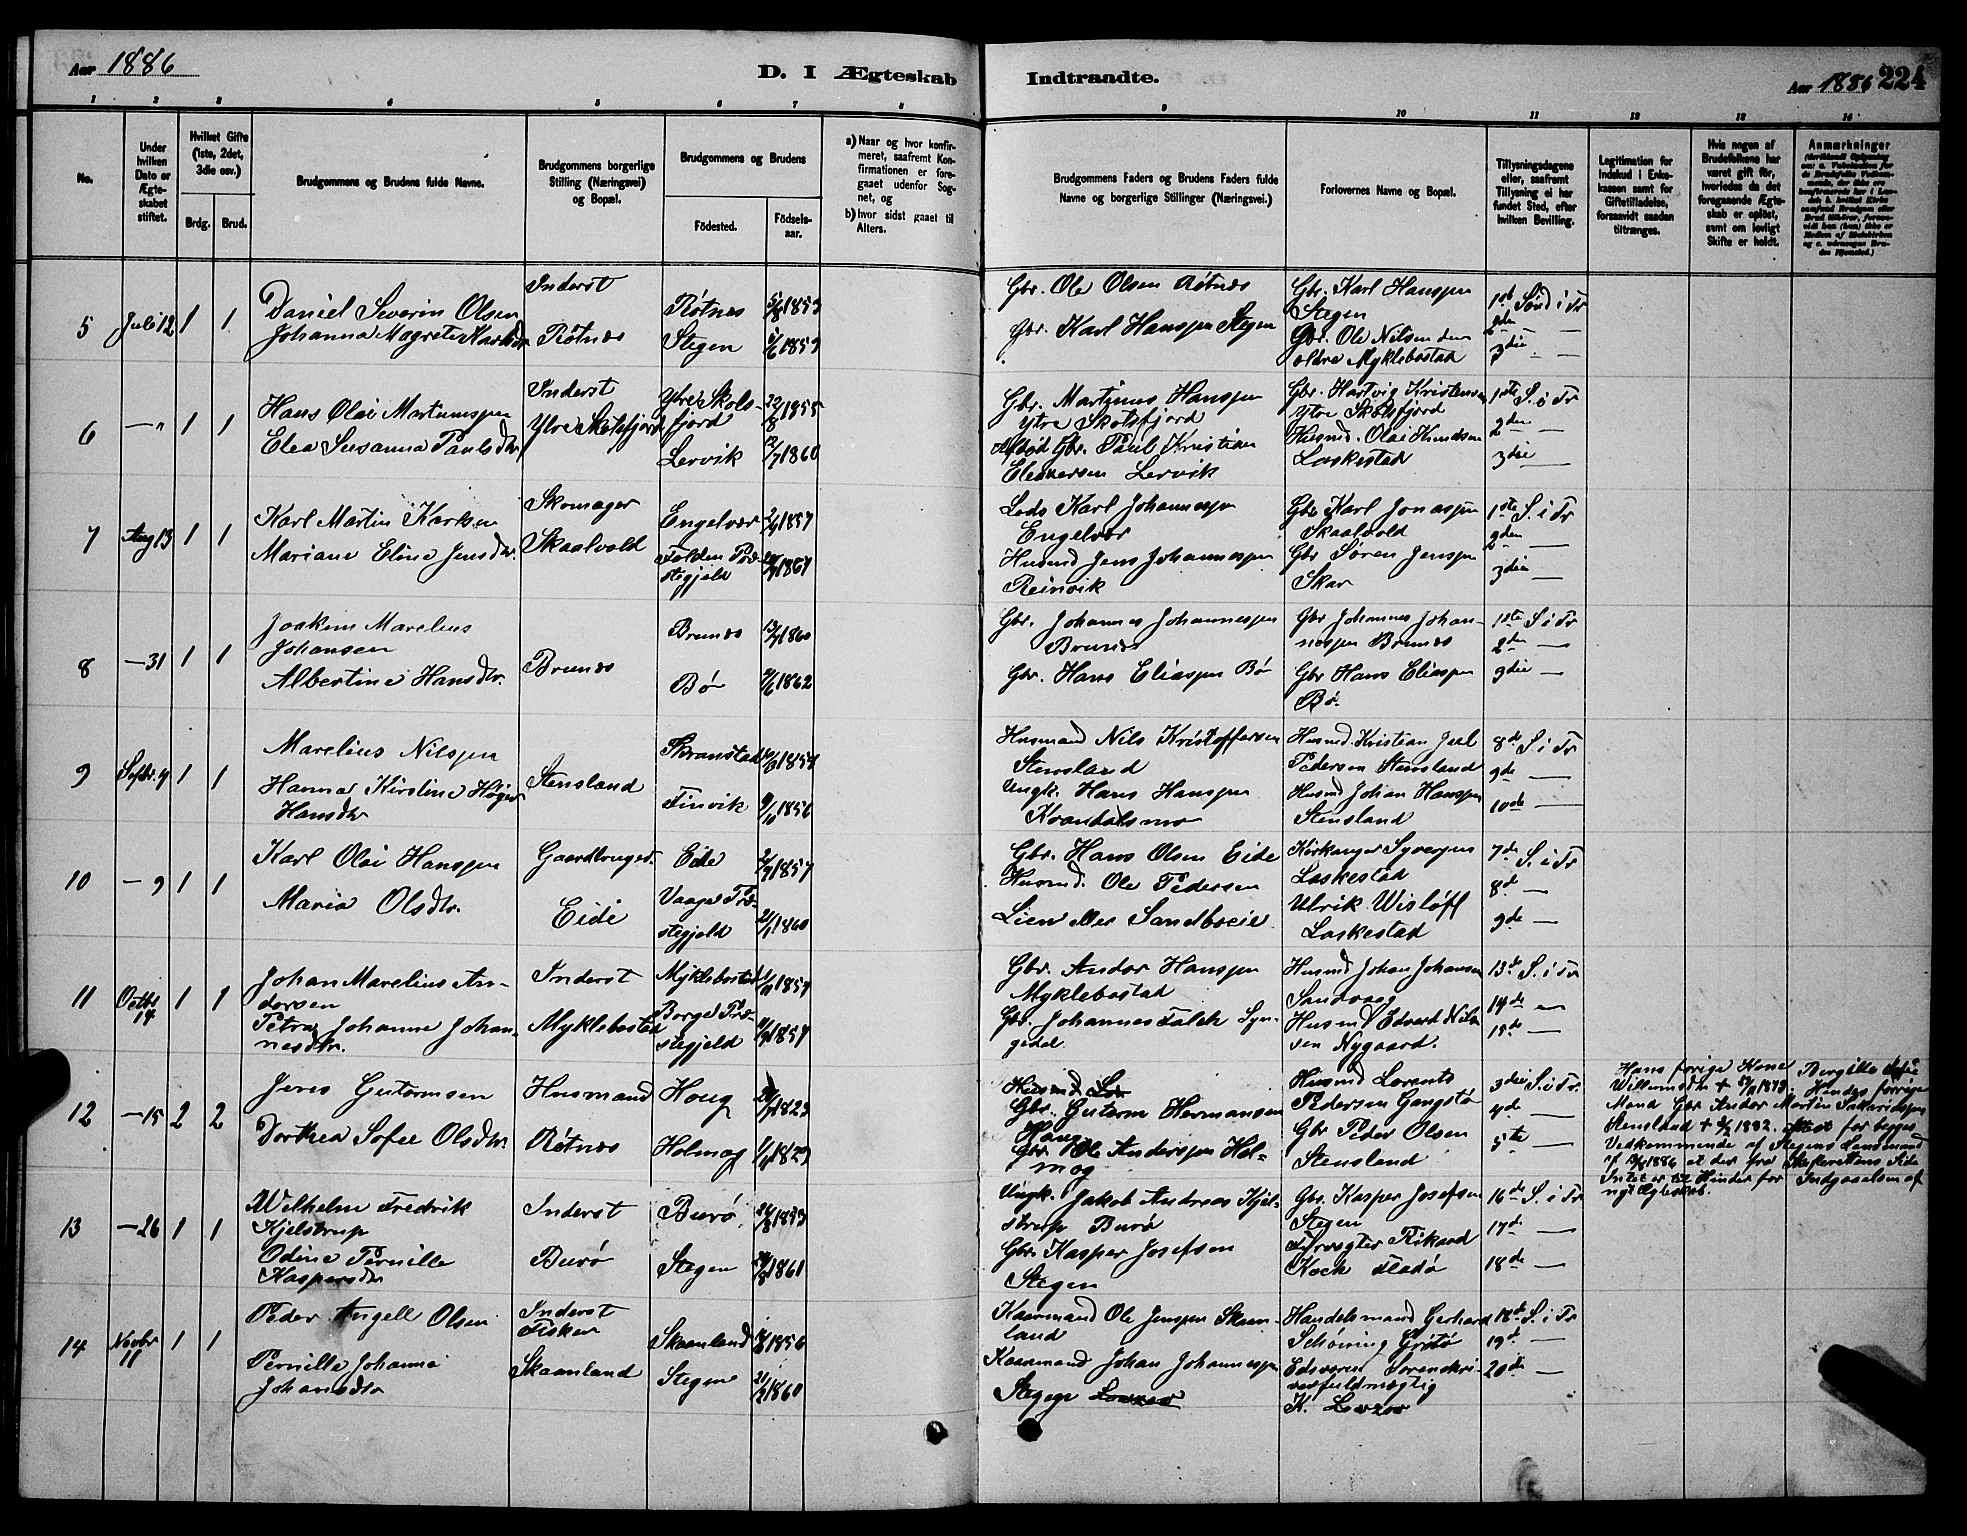 Aar 1886
D. I Ægteskab
Indtrandte.
Aar 1886
224
1 2 3 4 5 6 7 8 9 10 11 12 13 14
No.
Under hvilken Dato er Ægteskabet stiftet.
Hvilket Gifte (1ste, 2det, 3die osv.)
Brdg. Brud.
Brudgommens og Brudens fulde Navne.
Brudgommens borgerlige Stilling (Næringsvei) og Bopæl.
Brudgommens og Brudens
Fødested. Fødselsaar.
a) Naar og hvor konfirmeret, saafremt Konfirmationen er foregaaet udenfor Sognet, og
b) hvor sidst gaaet til Alters.
Brudgommens Faders og Brudens Faders fulde Navne og borgerlige Stillinger (Næringsvei.)
Forlovernes Navne og Bopæl.
Tillysningsdagene eller, saafremt Tillysning ei har fundet Sted, efter hvilken Bevilling.
Legitimation for Indskud i Enkekassen samt for Giftetilladelse, forsaavidt saadan tiltrænges.
Hvis nogen af Brudefolkene har været gift før, hvorledes da det foregaaende Ægteskab er opløst, samt om lovligt Skifte er holdt.
Anmærkninger
5 Juli 12 1 1
Daniel Severin Olsen
Johanna Magrete Karlsdr
Inderst
Røtnes
Røtnes 5/8 1853
Stegen 5/6 1859
Gbr. Ole Olsen Røtnes
Gbr. Karl Hanssen Stegen
Gbr. Karl Hanssen
Stegen
Gbr. Ole Nilsen den
ældre Myklebostad
1ste Sønd i Tr
2den —
3die —
6 —"— 1 1
Hans Olai Martinussen
Elea Susanna Paulsdtr
Inderst
Ytre Skotsfjord
Ytre Skotsfjord 22/8 1855
Lervik 12/7 1860
Gbr. Martinus Hanssen
Ytre Skotsfjord
Afdød Gbr. Paul Kristian
Eleasersen Lervik
Gbr. Hartvig Kristensen
Ytre Skotsfjord
Husmd. Olai Knudsen
Laskestad
1ste S. i Tr
2den —
3die —
7 Aug 13 1 1
Karl Martin Karlsen
Mariane Eline Jensdtr.
Skomager
Skaalvold
Engelvær 1857
Folden Præstegjeld 1867
Lods Karl Johannessen
Engelvær
Husmd Jens Johannessen
Reinvik
Gbr Karl Jonassen
Skaalvold
Gbr Søren Jenssen
Skar
1ste S. i Tr
2den —
3die —
8 —31 1 1
Joakim Marelius
Johansen
Albertine Hansdtr.
Brunes
Brunes 13/7 1860
Bø 9/6 1862
Gbr. Johannes Johannessen
Brunes
Gbr. Hans Eliassen Bø
Gbr Johannes Johannessen Brunes
Gbr Hans Eliassen
Bø.
1ste S i Tr
2den —
3die —
9 Septbr. 9 1 1
Marelius Nilssen
Hanna Kirstine Høier
Hansdtr
Stensland
Skranstad 1857
Finvik 9/10 1856
Husmand Nils Kristoffersen
Stensland
Ungk. Hans Hanssen
Kvandalsmo
Husmd. Kristian Juel
Pedersen Stensland
Husmd Johan Hanssen
Stensland
8de S i Tr
9de —
10de —
10 —9 1 1
Karl Olai Hanssen
Maria Olsdtr.
Gaardbruger
Eide
Eide 1857
Vaage Præstegjeld 21/1 1860
Gbr. Hans Olsen Eide
Husmd. Ole Pedersen
Lien eller Sandbæeie
Kirkanger Syversen
Laskestad
Ulrik Wisløff
Laskestad
7de S. i Tr
8de —
9de —
11 Octbr 14 1 1
Johan Marelius Andersen
Petra Johanne Johannesdtr.
Inderst
Myklebostad
Myklebostad 1857
Borge Præstegjeld 1857
Gbr. Andor Hanssen
Myklebostad
Gbr. Johannes Falck Syngedal
Husmd Johan Johansen
Sandvaag
Husmd Edvard Nilssen Nygaard.
13de S. i Tr
14de —
15de —
12 —15 2 2
Jens Gutormsen
Dorthea Sofie Olsdtr.
Husmand
Røtnes
Houg 1823
Holmog 1829
Husmd
Gbr. Gutorm Hermansen
Houg
Gbr. Ole Anderssen Holmog
Husmd Lorents
Pedersen Gangstø
Gbr Peder Olsen
Stensland
3die S. i Tr.
4de —
5te —
Hans forige Kone Bergitte Sofie
Willumsdtr + 1873. Hendes forrige
Mand Gbr Andor Martin Sakariassen
Stensland + 1882. Attest for begges
Vedkommende af Stegens Lensmand
af 1886 at der fra Skifterettens Side
Intet er til Hinder for Indgaaelsen af
nyt Ægteskab.
13 —26 1 1
Wilhelm Fredrik
Kjelstrup
Odine Pernille
Kaspersdtr
Inderst
Burø
Burø 24/8 1853
Stegen 1861
Ungk. Jakob Andreas Kjelstrup Burø
Gbr. Kasper Josefsen
Stegen
Gbr. Kasper Josefsen
Stegen
Fyrvogter Rikard
Kock Fladø
16de S. i Tr
17de —
18de —
14 Novbr 11 1 1
Peder Angell Olsen
Pernille Johanna
Johansdtr
Inderst
Fisker
Skaanland
Skaanland 1856
Stegen 21/2 1860
Kaarmand Ole Jenssen Skaanland
Kaarmand Johan Johannessen
Stegen
Handelsmand Gerhard
Schøning Grøtø
Edsvoren Sorenskriverfuldmægtig
K. Lorzor
18de S. i Tr
19de —
20de —